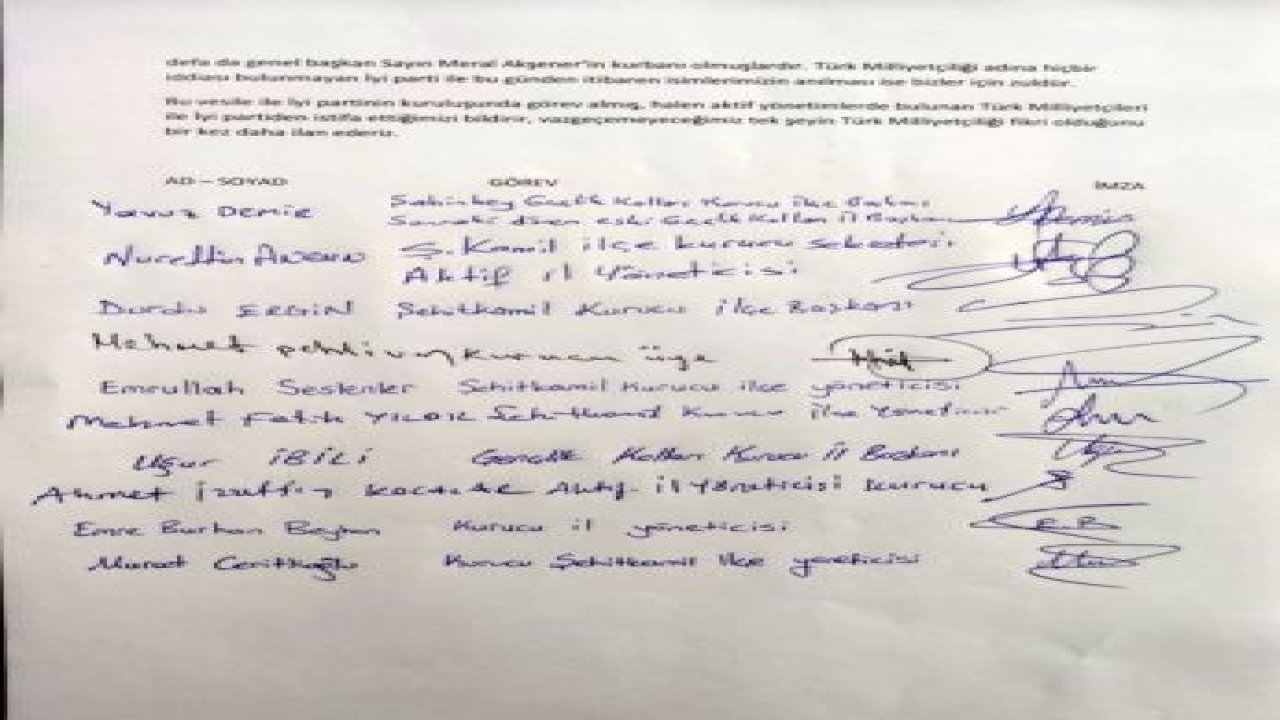 defa da genel başkan Sayın Meral Akşener'in kurbanı olmuşlardır. Türk Milliyetçiliği adına hiçbir
iddiası bulunmayan İyi parti ile bu günden itibaren isimlerimizin anılması ise bizler için zuldür.
Bu vesile ile İyi partinin kuruluşunda görev almış, halen aktif yönetimlerde bulunan Türk Milliyetçileri
ile İyi partiden istifa ettiğimizi bildirir, vazgeçemeyeceğimiz tek şeyin Türk Milliyetçiliği fikri olduğunu
bir kez daha ilan ederiz.
AD – SOYAD GÖREV İMZA
Yavuz DEMİR Şahinbey Gençlik Kolları Kurucu ilçe
eski Gençlik Kolları il Başkanı
Nurettin Ş.Kamil ilçe kurucu sekreteri
Aktif il Yöneticisi
Durdu ERGİN Şehitkamil Kurucu ilçe Başkanı
Mehmet pehlivan kurucu üye
Emrullah Seslenler Şehitkamil Kurucu ilçe yöneticisi
Mehmet Fatih YILDIZ Şehitkamil Kurucu ilçe yöneticisi
Uğur İBİLİ Gençlik Kolları Kurucu İl Başkanı
Ahmet İzettin Aktif il Yöneticisi kurucu
Emre Burhan Kurucu il yöneticisi
Murat Ceritoğlu Kurucu Şehitkamil ilçe yöneticisi
E B